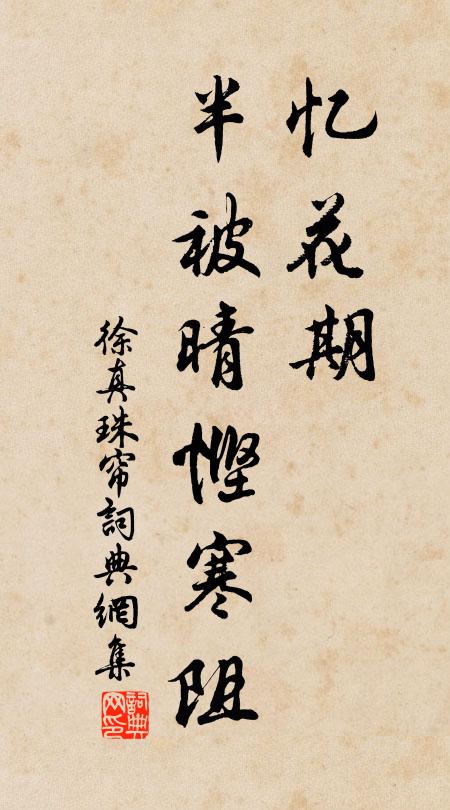 忆花期
半被晴悭寒阻
徐真珠帘詞典網集
詞典
网印